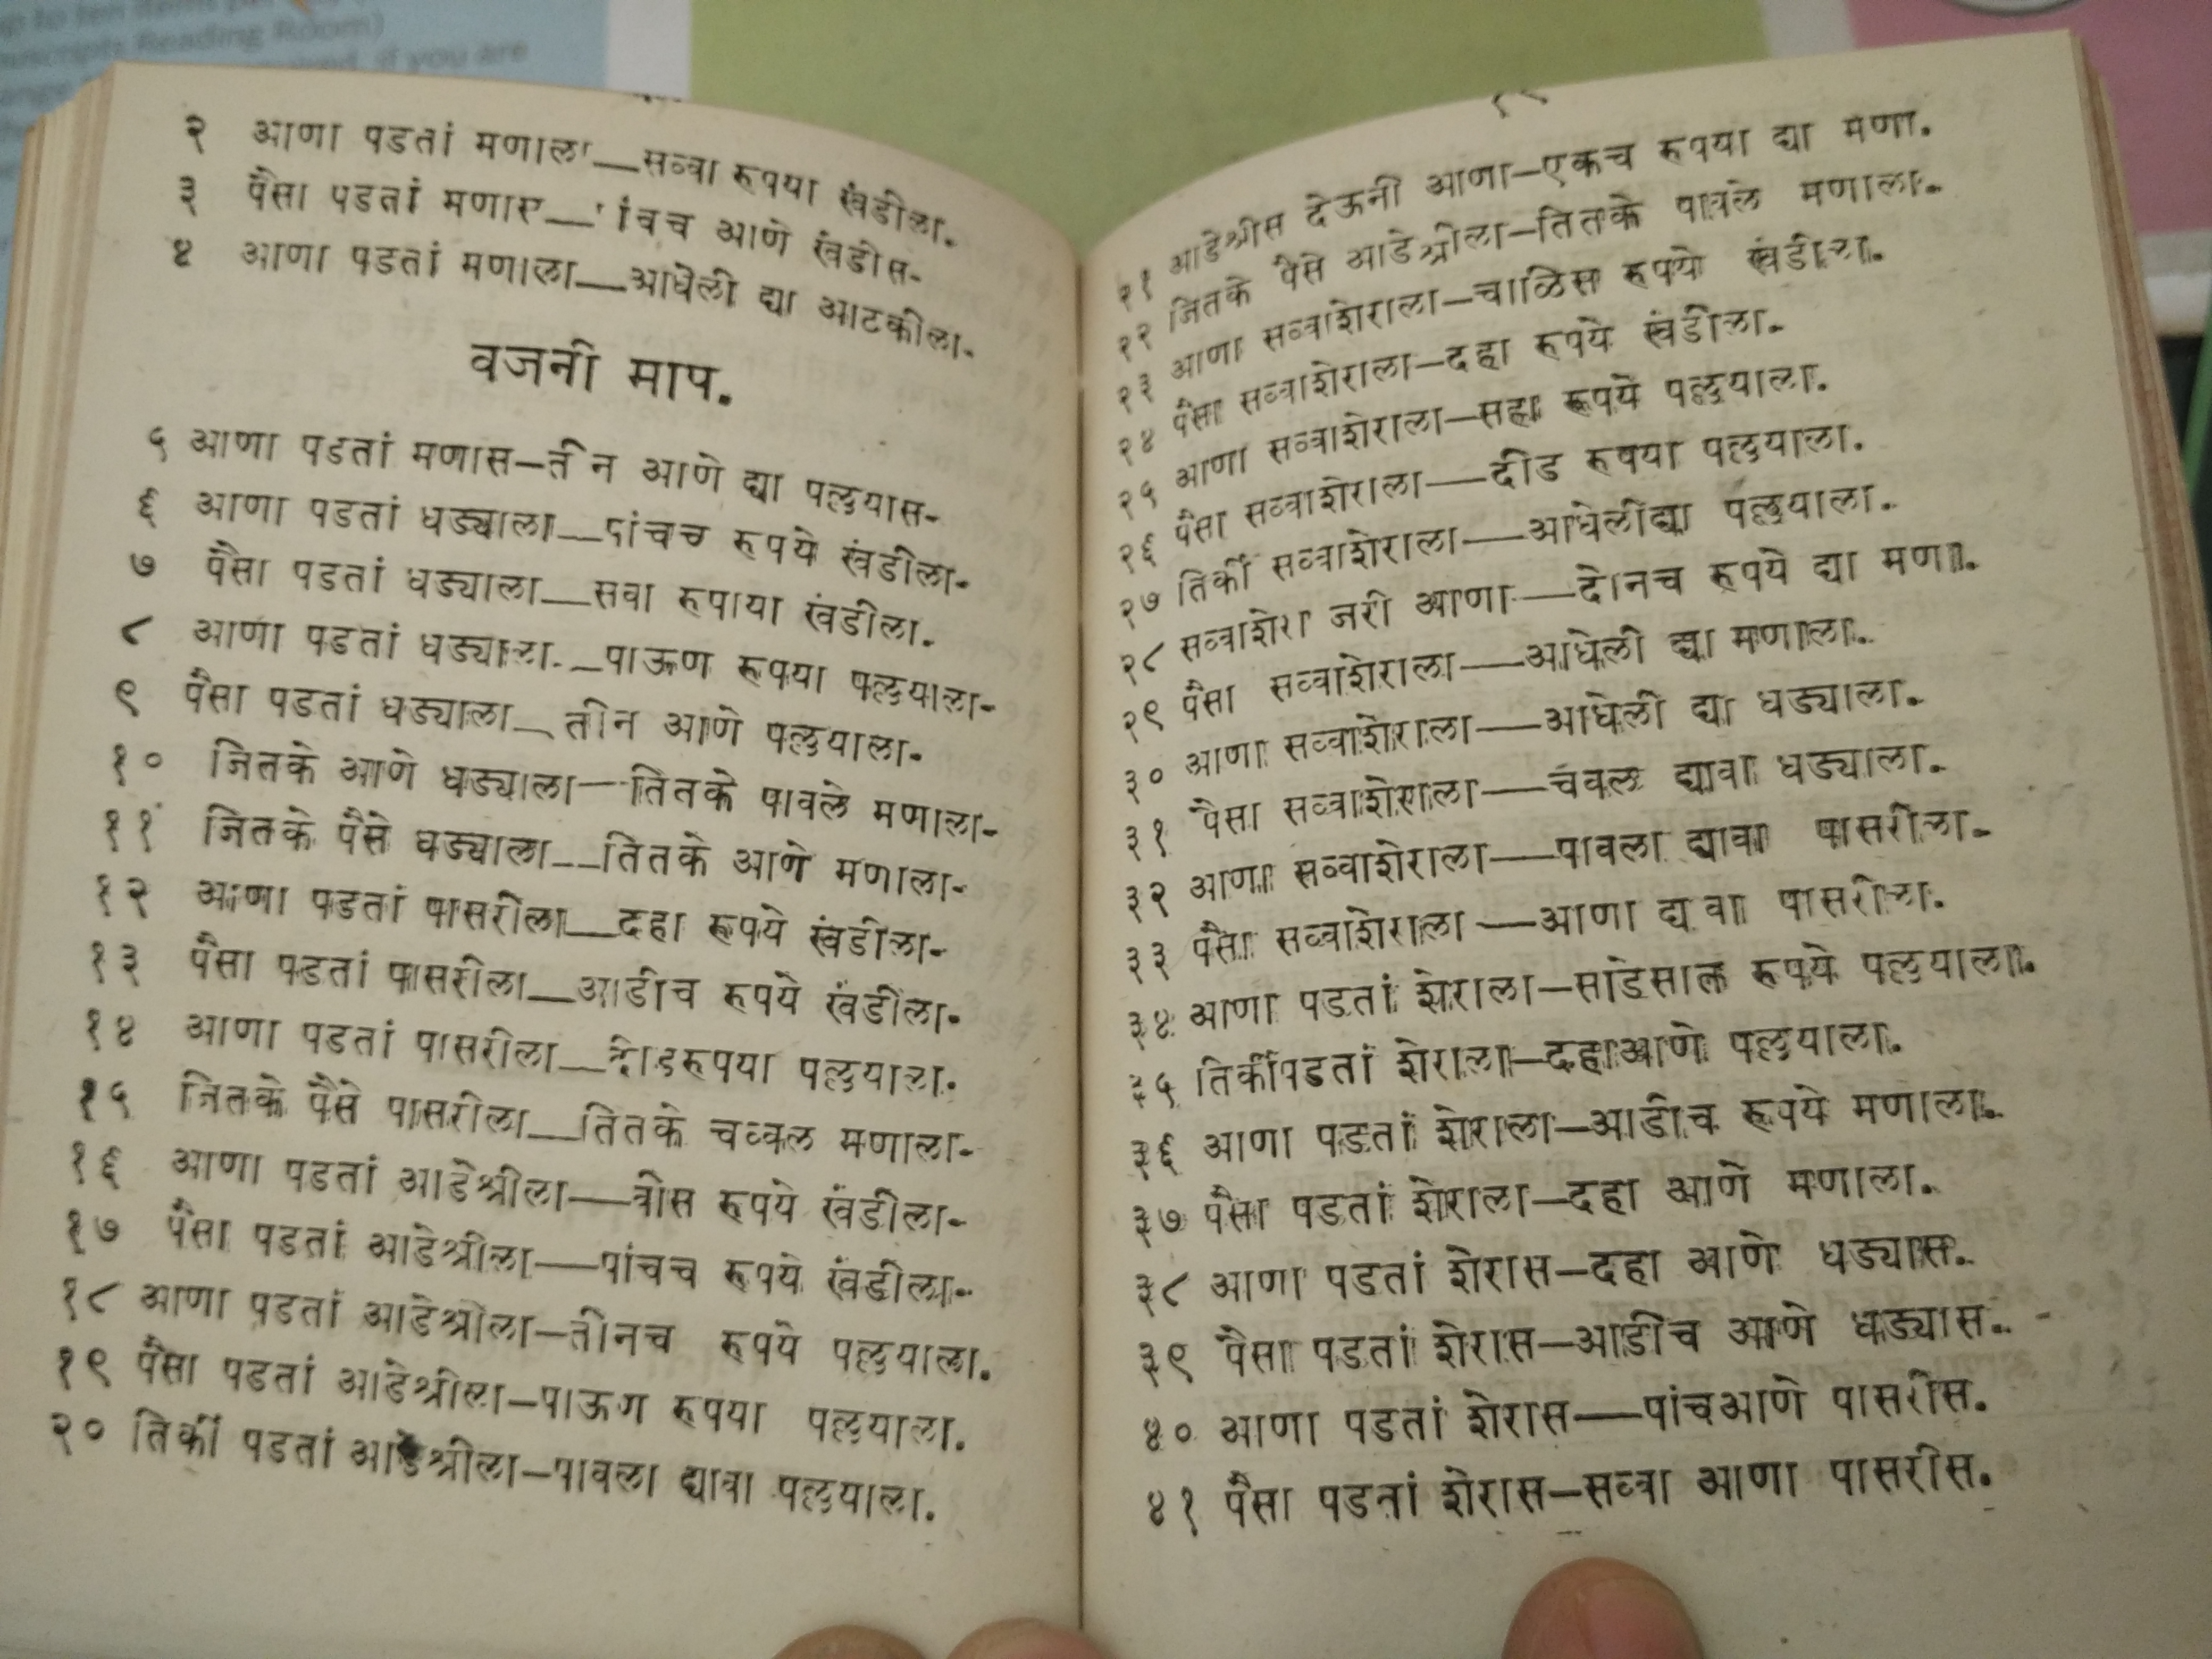 up to ten items per
Manuscripts Reading Room)
if you are
२ आणा पडतां मणाला—सव्वा रुपया खंडीला.
३ पैसा पडतां मणास—पांचच आणे खंडीस.
४ आणा पडतां मणाला—आधेली द्या आटकीला.
वजनी माप.
५ आणा पडतां मणास—तीन आणे द्या पल्लुयास.
६ आणा पडतां धड्याला—पांचच रुपये खंडीला.
७ पैसा पडतां धड्याला—सवा रुपाया खंडीला.
८ आणा पडतां धड्याला.—पाऊण रुपया पल्लुयाला.
९ पैसा पडतां धड्याला—तीन आणे पल्लुयाला.
१० जितके आणे धड्याला—तितके पावले मणाला.
११ जितके पैसे धड्याला—तितके आणे मणाला.
१२ आणा पडतां पासरीला—दहा रुपये खंडीला.
१३ पैसा पडतां पासरीला—आडीच रुपये खंडीला.
१४ आणा पडतां पासरीला—दीडरुपया पल्लुयाला.
१५ जितके पैसे पासरीला—तितके चव्वल मणाला.
१६ आणा पडतां आडेश्रीला—वीस रुपये खंडीला.
१७ पैसा पडतां आडेश्रीला—पांचच रुपये खंडीला.
१८ आणा पडतां आडेश्रीला—तीनच रुपये पल्लुयाला.
१९ पैसा पडतां आडेश्रीला—पाऊण रुपया पल्लुयाला.
२० तिर्की पडतां आडेश्रीला—पावला द्यावा पल्लुयाला.
२१ आडेश्रीस देऊनी आणा—एकच रुपया द्या मणा.
२२ जितके पैसे आडेश्रीला—तितके पावले मणाला.
२३ आणा सव्वाशेराला—चाळिस रुपये खंडीला.
२४ पैसा सव्वाशेराला—दहा रुपये खंडीला.
२५ आणा सव्वाशेराला—सहा रुपये पल्लुयाला.
२६ पैसा सव्वाशेराला—दीड रुपया पल्लुयाला.
२७ तिर्की सव्वाशेराला—आधेलीद्या पल्लुयाला.
२८ सव्वाशेरा जरी आणा—दोनच रुपये द्या मणा.
२९ पैसा सव्वाशेराला—आधेली द्या मणाला.
३० आणा सव्वाशेराला—आधेली द्या धड्याला.
३१ पैसा सव्वाशेराला—चवल द्यावा धड्याला.
३२ आणा सव्वाशेराला—पावला द्यावा पासरीला.
३३ पैसा सव्वाशेराला—आणा द्यावा पासरीला.
३४ आणा पडतां शेराला—साडेसात रुपये पल्लुयाला.
३५ तिर्कीपडतां शेराला—दहाआणे पल्लुयाला.
३६ आणा पडतां शेराला—आडीच रुपये मणाला.
३७ पैसा पडतां शेराला—दहा आणे मणाला.
३८ आणा पडतां शेरास—दहा आणे धड्यास.
३९ पैसा पडतां शेरास—आडीच आणे धड्यास.
४० आणा पडतां शेरास—पांचआणे पासरीस.
४१ पैसा पडतां शेरास—सव्वा आणा पासरीस.